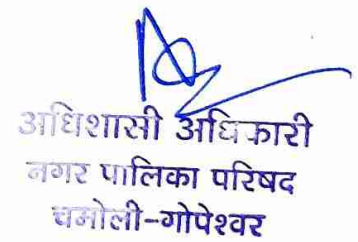 अधिशासी अधिकारी
नगर पालिका परिषद
चमोली-गोपेश्वर